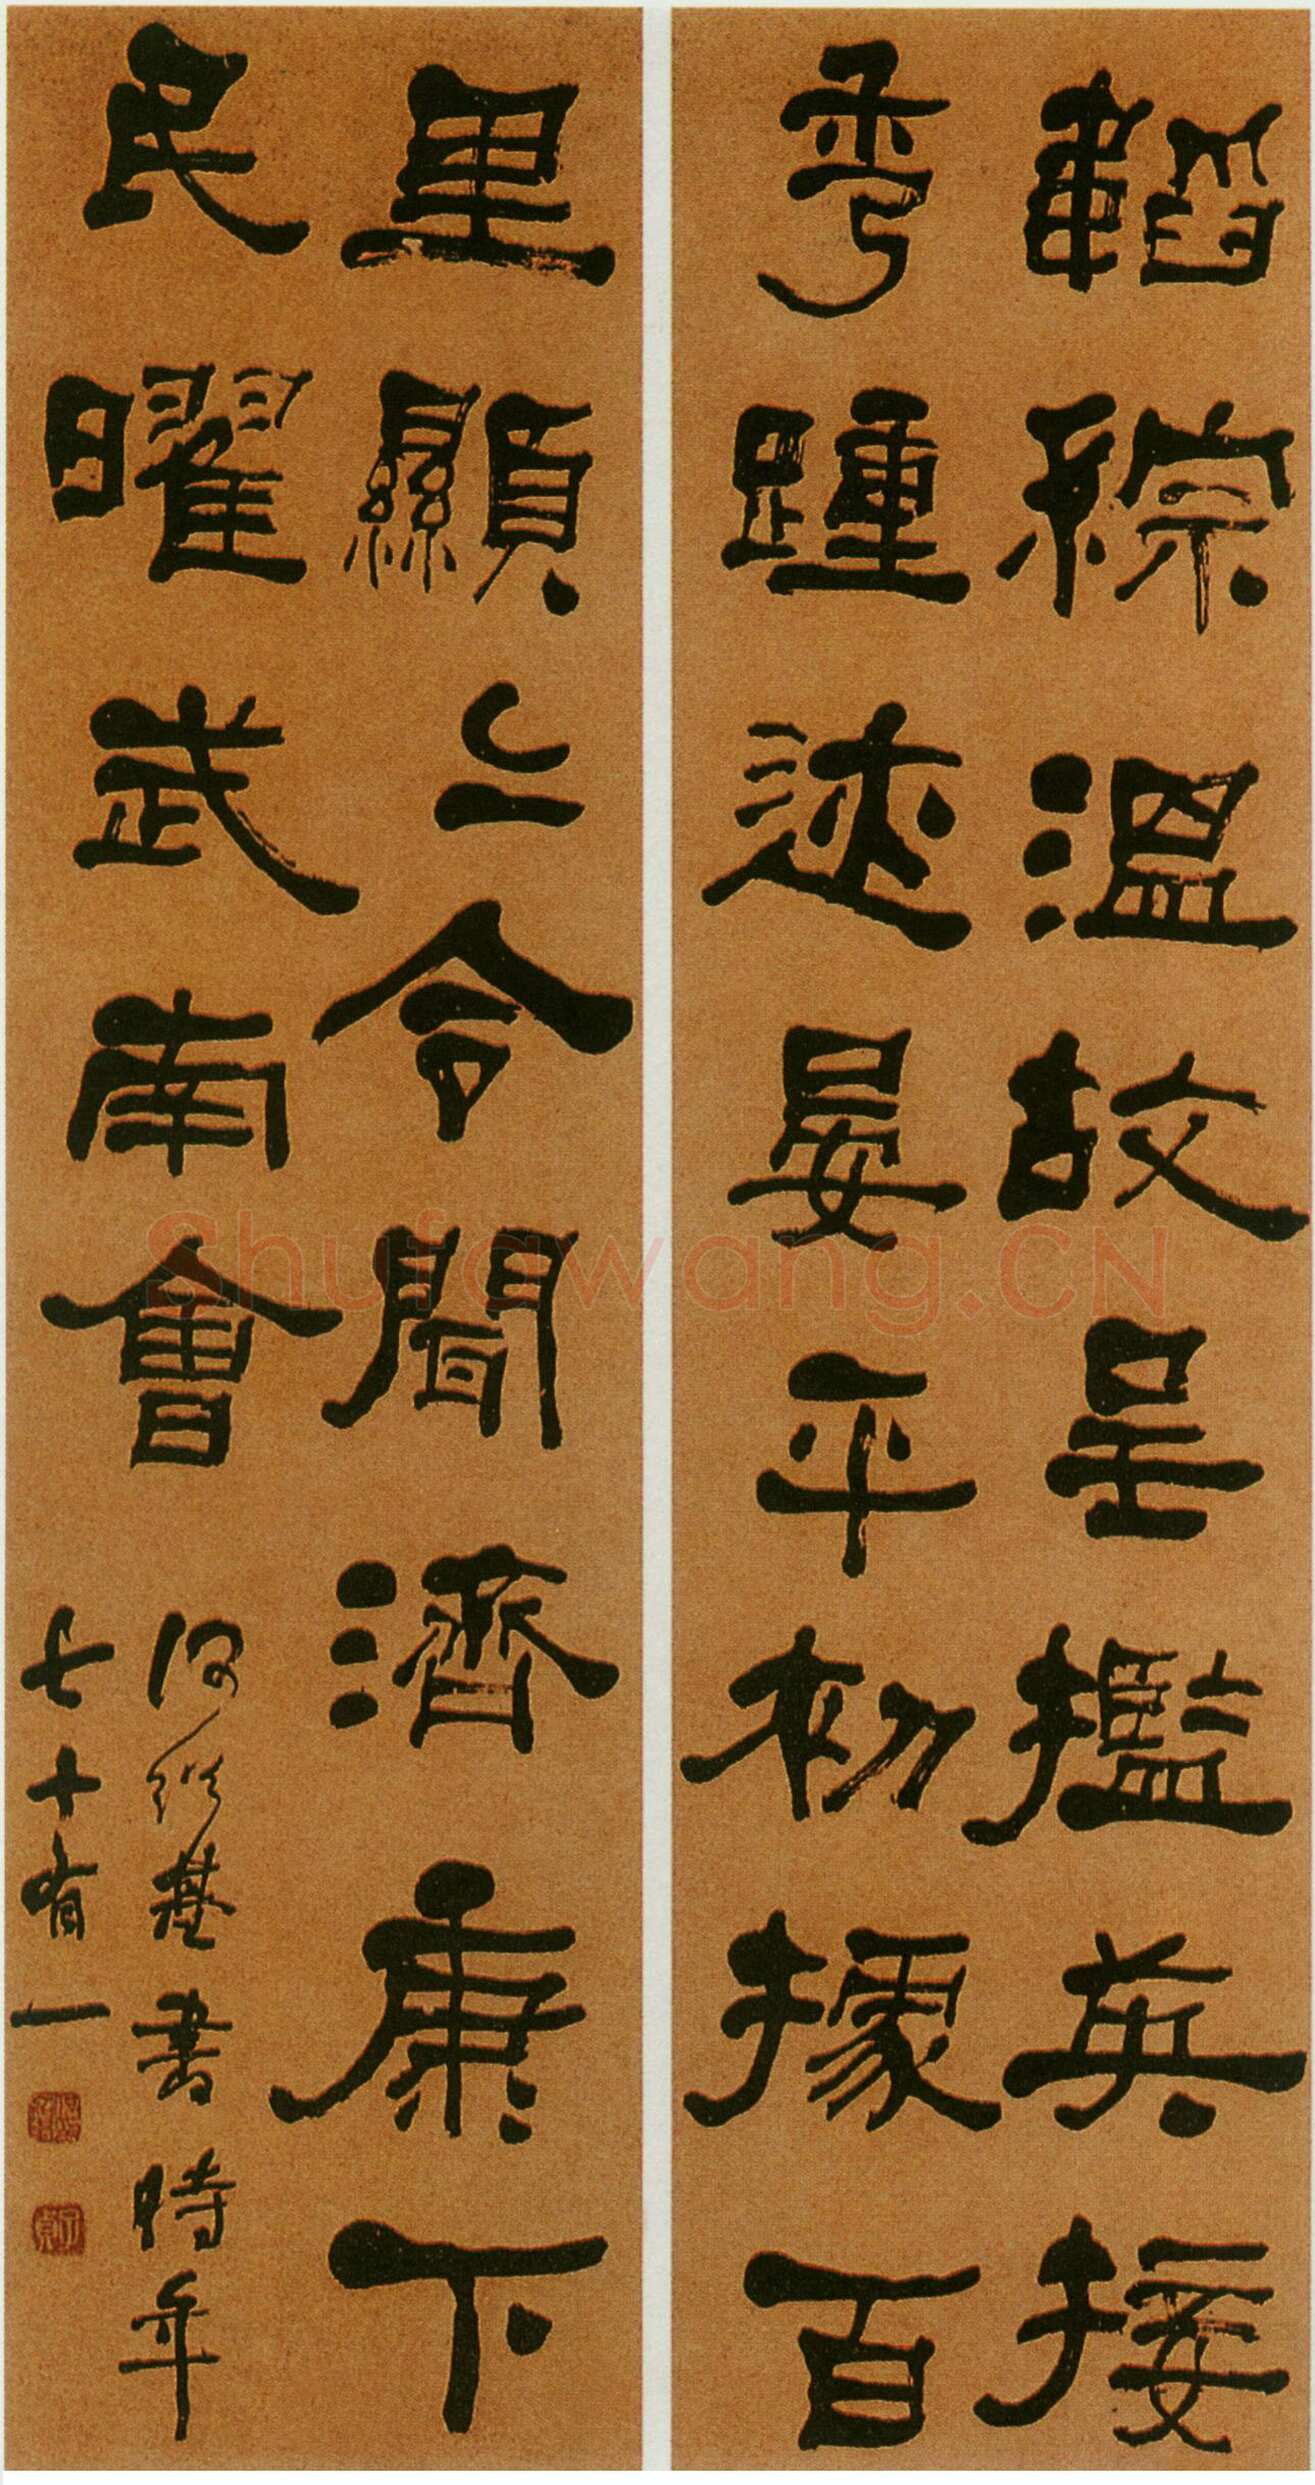 韜綜溫故呈㩜英接
秀踵迹晏平初據百
里顯二令聞濟康下
民曜武南會
何紹基書時年
七十有一
Shufawang.CN